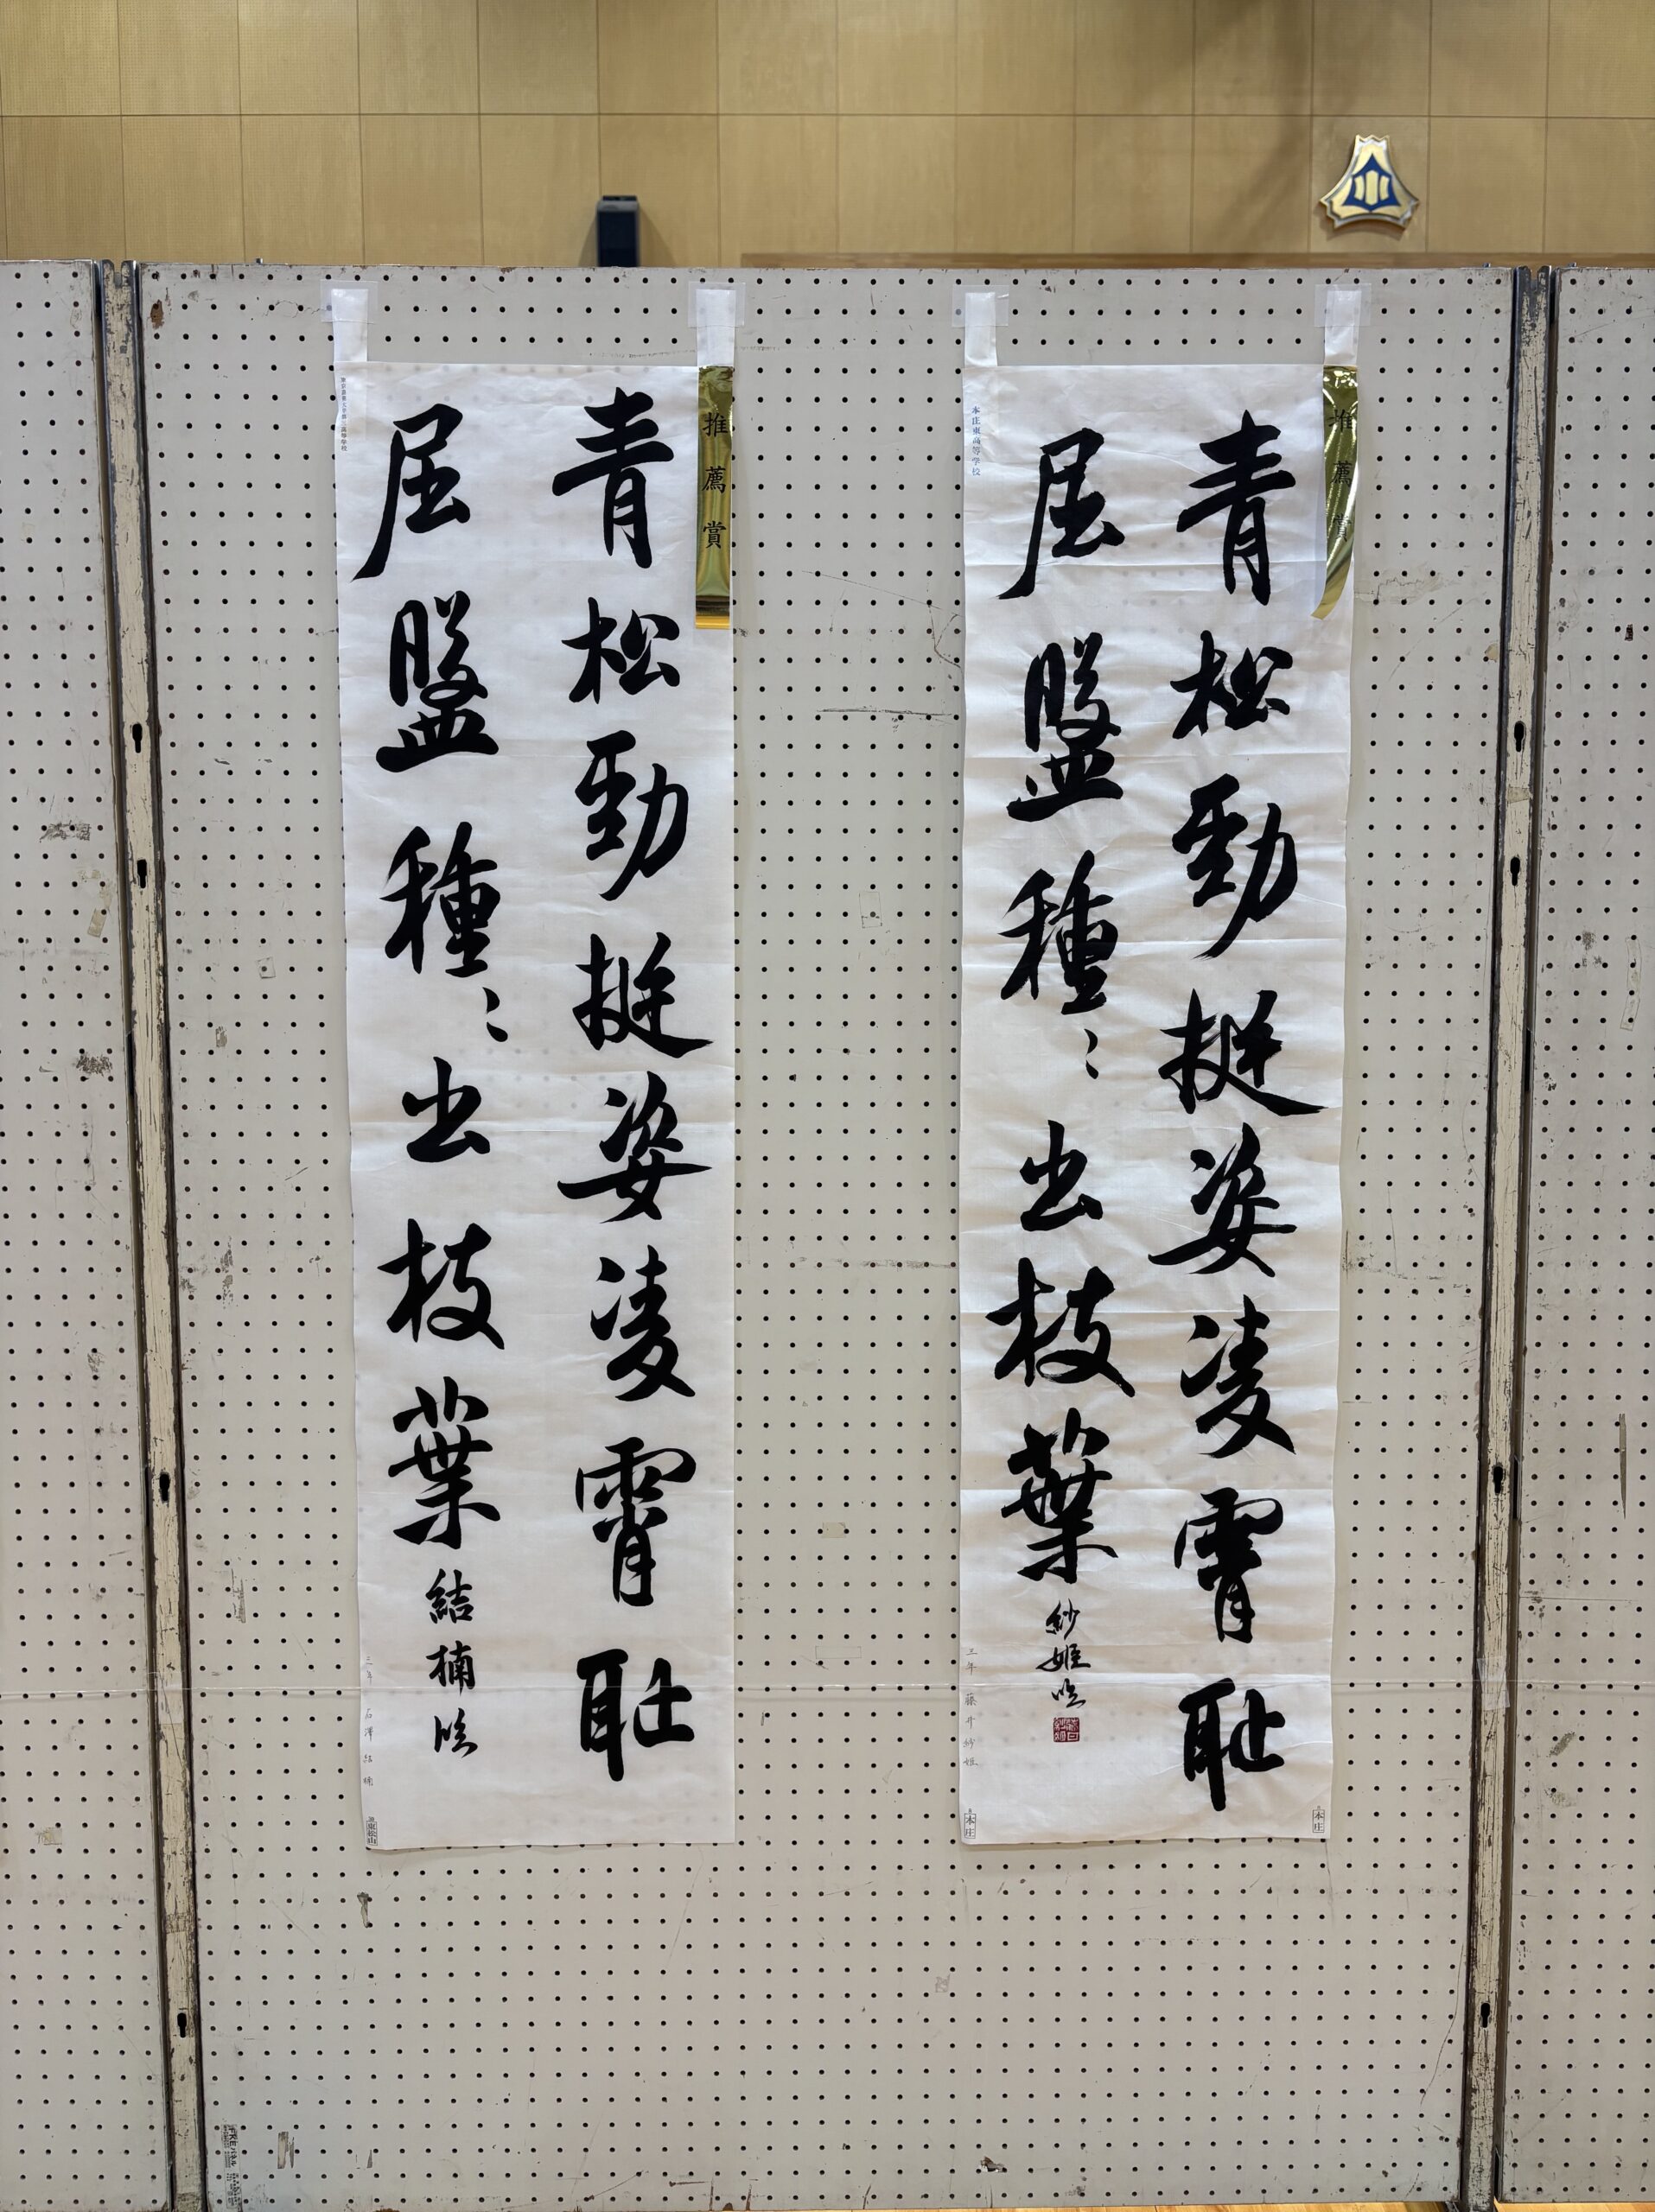 推薦賞
青松勁挺姿凌霄恥
屈盤種〻出枝葉
紗姫臨
本庄東高等学校
三年 藤井紗姫
本庄
本庄
推薦賞
青松勁挺姿凌霄恥
屈盤種〻出枝葉
結楠臨
三年 石澤結楠
東松山